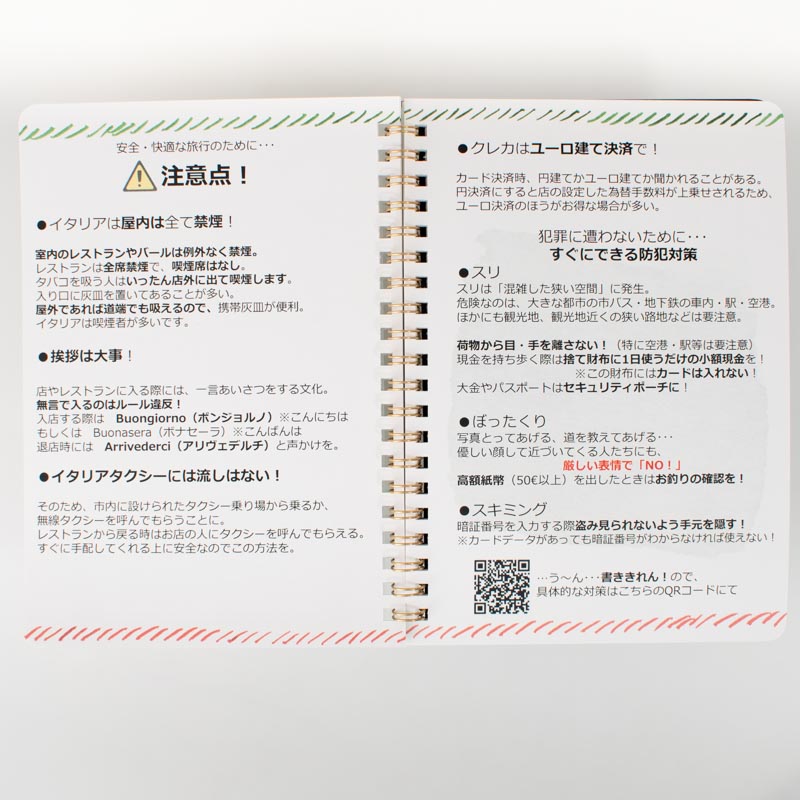 安全・快適な旅行のために･･･
注意点！
●イタリアは屋内は全て禁煙！
室内のレストランやバールは例外なく禁煙。
レストランは全席禁煙で、喫煙席はなし。
タバコを吸う人はいったん店外に出て喫煙します。
入り口に灰皿を置いてあることが多い。
屋外であれば道端でも吸えるので、携帯灰皿が便利。
イタリアは喫煙者が多いです。
●挨拶は大事！
店やレストランに入る際には、一言あいさつをする文化。
無言で入るのはルール違反！
入店する際は　Buongiorno（ボンジョルノ）※こんにちは
もしくは　Buonasera（ボナセーラ）※こんばんは
退店時には　Arrivederci（アリヴェデルチ）と声かけを。
●イタリアタクシーには流しはない！
そのため、市内に設けられたタクシー乗り場から乗るか、
無線タクシーを呼んでもらうことに。
レストランから戻る時はお店の人にタクシーを呼んでもらえる。
すぐに手配してくれる上に安全なのでこの方法を。
●クレカはユーロ建て決済で！
カード決済時、円建てかユーロ建てか聞かれることがある。
円決済にすると店の設定した為替手数料が上乗せされるため、
ユーロ決済のほうがお得な場合が多い。
犯罪に遭わないために･･･
すぐにできる防犯対策
●スリ
スリは「混雑した狭い空間」に発生。
危険なのは、大きな都市の市バス・地下鉄の車内・駅・空港。
ほかにも観光地、観光地近くの狭い路地などは要注意。
荷物から目・手を離さない！（特に空港・駅等は要注意）
現金を持ち歩く際は捨て財布に1日使うだけの小額現金を！
※この財布にはカードは入れない！
大金やパスポートはセキュリティポーチに！
●ぼったくり
写真とってあげる、道を教えてあげる･･･
優しい顔して近づいてくる人たちにも、
厳しい表情で「NO！」
高額紙幣（50€以上）を出したときはお釣りの確認を！
●スキミング
暗証番号を入力する際盗み見られないよう手元を隠す！
※カードデータがあっても暗証番号がわからなければ使えない！
…う～ん･･･書ききれん！ので、
具体的な対策はこちらのQRコードにて